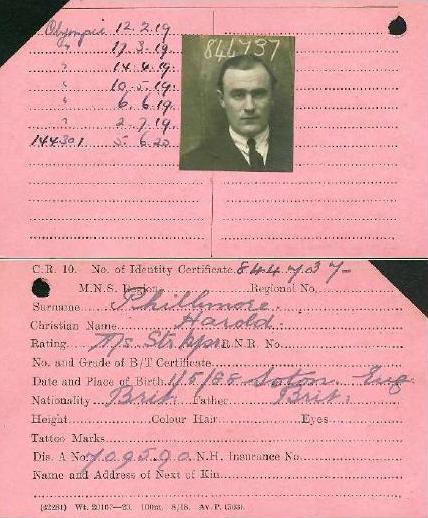 Olympic 12.2.19
" 17.3.19
" 14.4.19
" 10.5.19
" 6.6.19
" 2.7.19
144301 5.6.20
844737
C.R. 10. No. of Identity Certificate. 844737
M.N.S. Region Regional No.
Surname Phillimore
Christian Name Harold
Rating R.N.R. No.
No. and Grade of B/T Certificate
Date and Place of Birth Soton. Eng
Nationality Brit. Father Brit.
Height Colour Hair Eyes
Tattoo Marks
Dis. A No. 709590 N.H. Insurance No.
Name and Address of Next of Kin
100m. 8/18. Av. P.